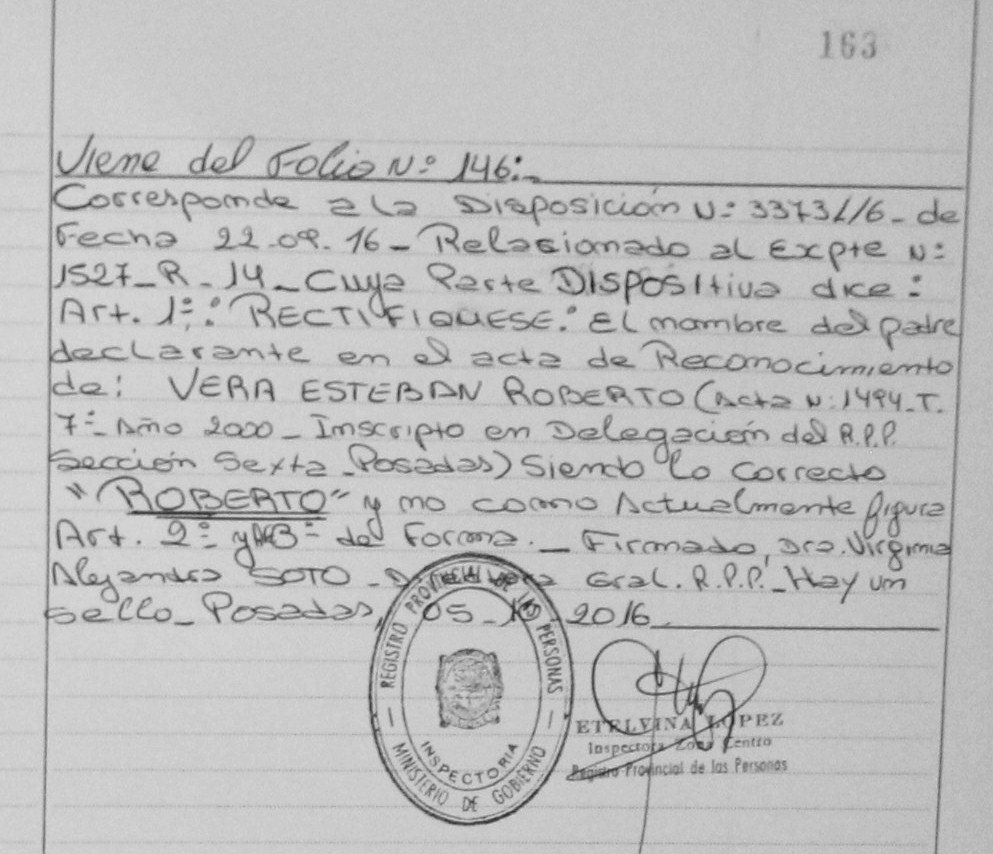 163
Viene del Folio N:º 146:-
Corresponde a la Disposición N:º 3373//16_ de
Fecha 22-09-16_ Relacionado al Expte N:º
1527_R_14_ Cuya Parte DISPOSITIVA dice:
Art. 1º: RECTIFIQUESE: El nombre del padre
declarante en el acta de Reconocimiento
de: VERA ESTEBAN ROBERTO (Acta N:º 1494_T.
7º_ Año 2000_ Inscripto en Delegación del R.P.P.
Sección Sexta_Posadas) Siendo lo Correcto
"ROBERTO" y no como Actualmente figura
Art. 2º y 3º de Forma._ Firmado, Dra. Virginia
Alejandra SOTO_ Gral. R.P.P._ Hay un
sello_ Posadas, 05_10_2016
REGISTRO PROVINCIAL DE LAS PERSONAS
INSPECTORIA
MINISTERIO DE GOBIERNO
ETELVINA LOPEZ
Inspectora Zona Centro
Registro Provincial de las Personas